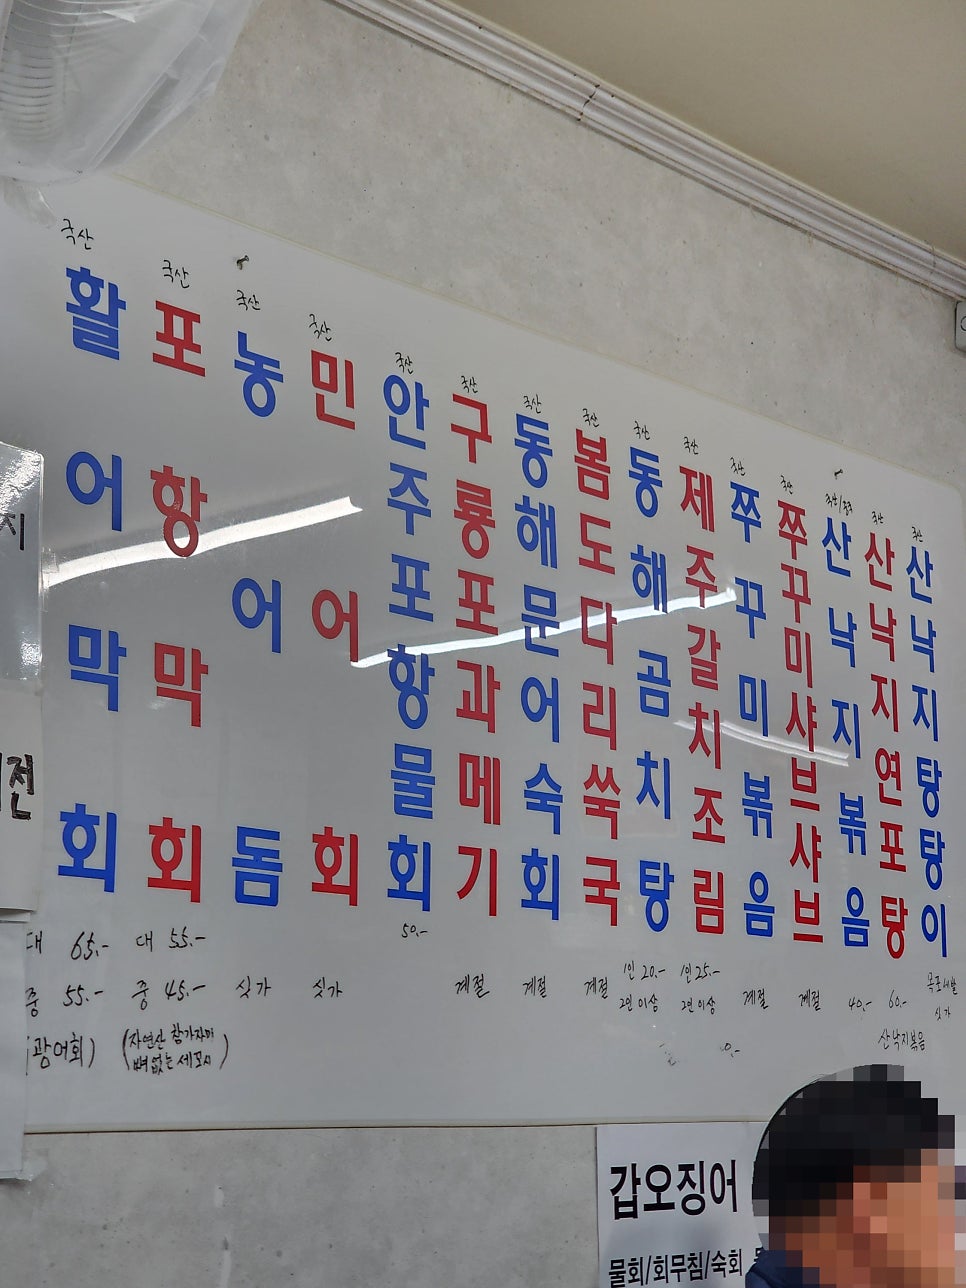 국산
활어막회
대 65.-
중 55.-
(광어회)
국산
포항막회
대 55.-
중 45.-
(자연산 참가자미
뼈없는 세꼬시)
국산
농어돔
싯가
국산
민어회
싯가
국산
안주포항물회
50.-
국산
구룡포과메기
계절
국산
동해문어숙회
계절
국산
봄도다리쑥국
계절
국산
동해곰치탕
1인 20.-
2인 이상
국산
제주갈치조림
1인 25.-
2인 이상
국산
쭈꾸미볶음
계절
국산
쭈꾸미샤브샤브
계절
산낙지볶음
40.-
국산
산낙지연포탕
60.-
산낙지볶음
국산
산낙지탕탕이
싯가
지
전
갑오징어
물회/회무침/숙회